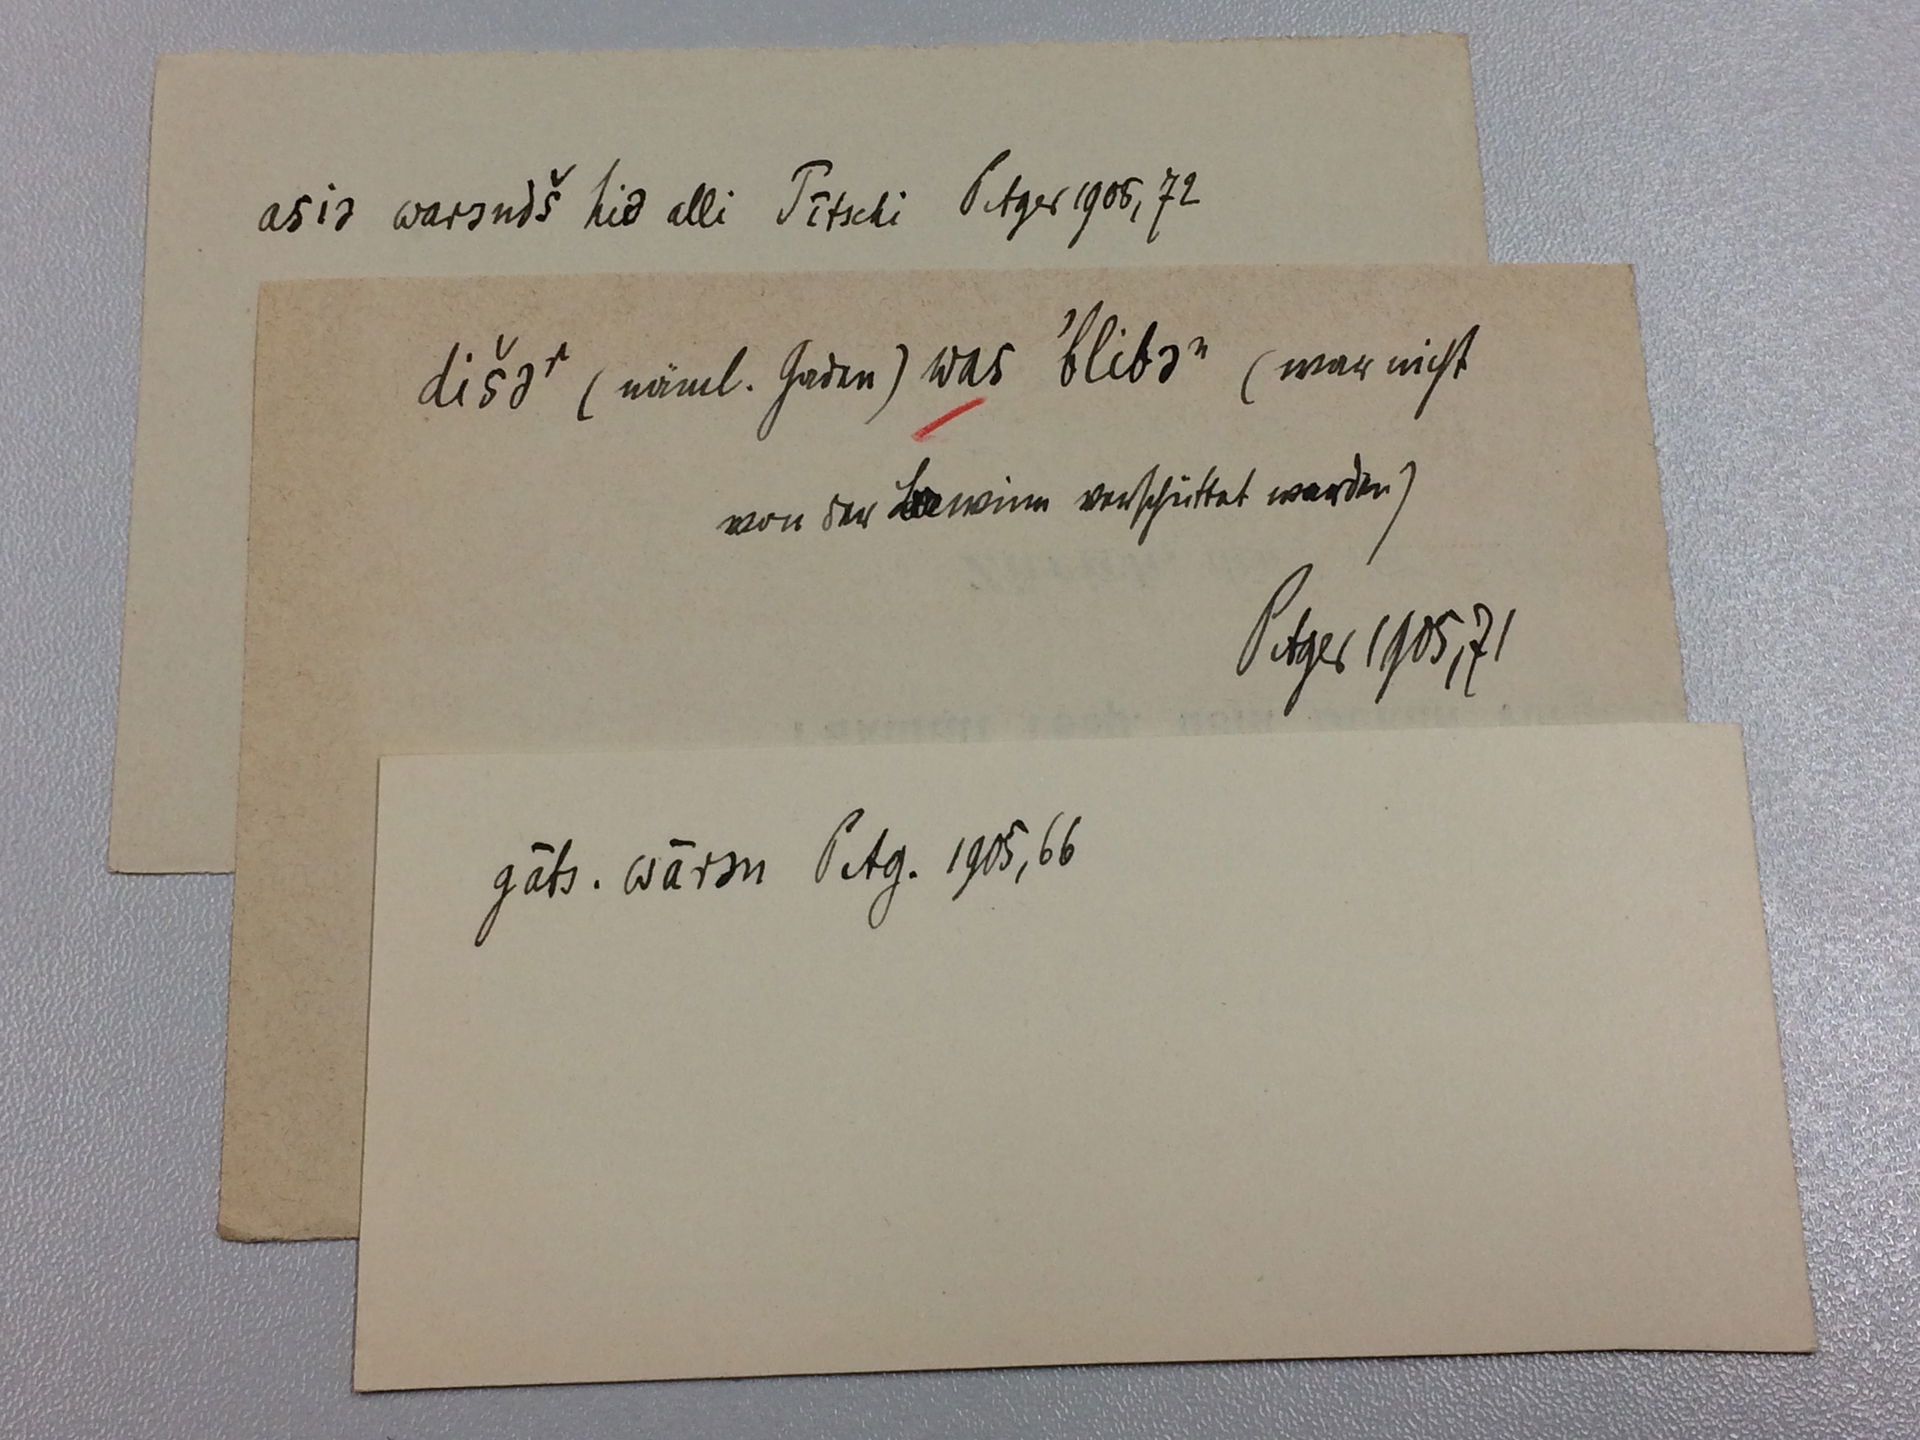 asiə warəndš hiə alli Tītschi PAger 1905, 72
dišəʳ (näml. Gaden) was 'blibəⁿ (war nicht
von der Lewinn verschüttet worden)
PAger 1905, 71
gäts. wārən PAg. 1905, 66